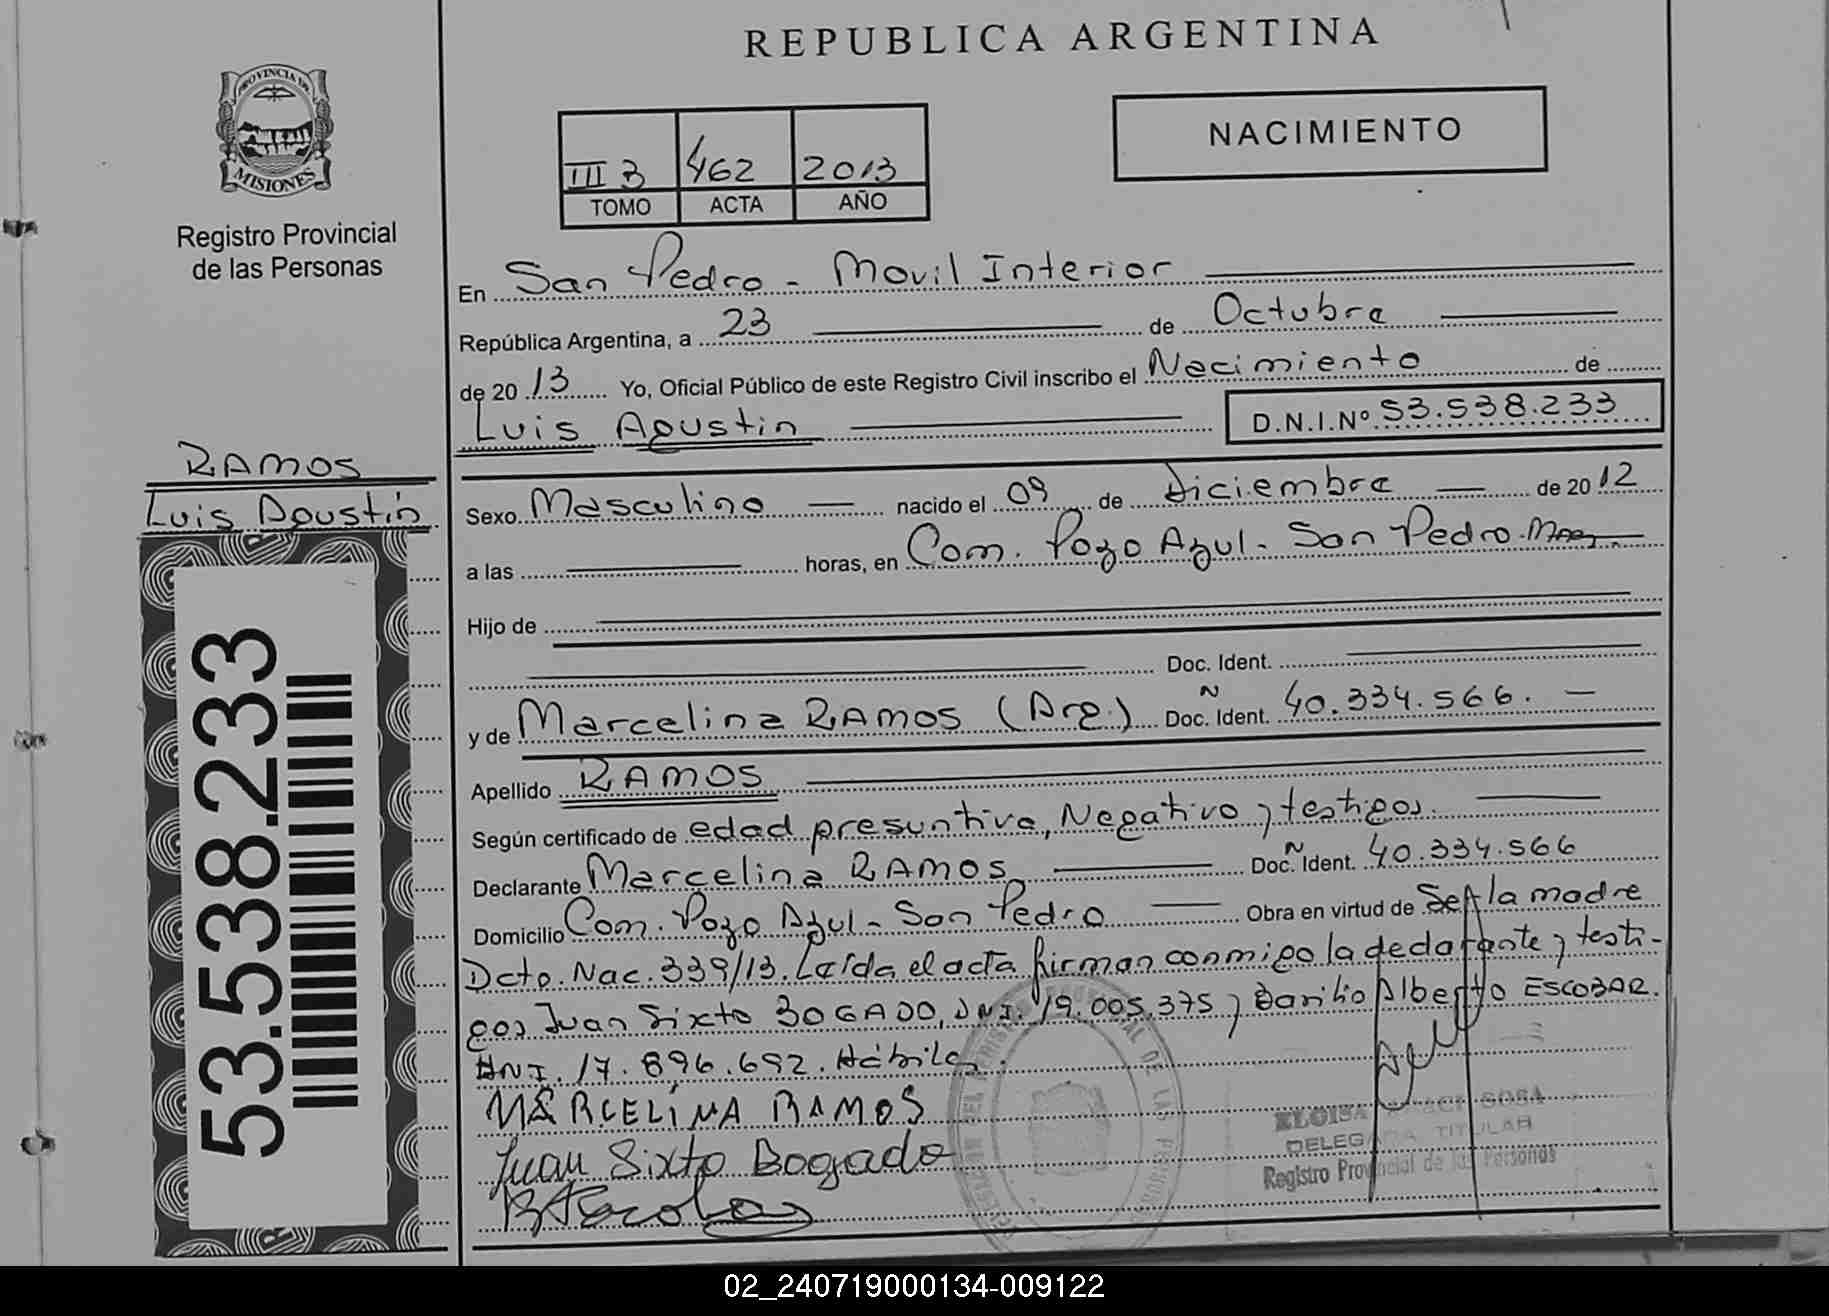 REPUBLICA ARGENTINA
PROVINCIA DE
MISIONES
Registro Provincial
de las Personas
III 3 462 2013
TOMO ACTA AÑO
NACIMIENTO
En San Pedro - Movil Interior
República Argentina, a 23 de Octubre
de 2013 Yo, Oficial Público de este Registro Civil inscribo el Nacimiento de
Luis Agustin D.N.I.Nº 53.538.233
RAMOS
Luis Agustin
Sexo Masculino — nacido el 09 de diciembre — de 2012
a las horas, en Com. Pozo Azul - San Pedro - Mnes.
Hijo de
Doc. Ident.
y de Marcelina RAMOS (Arg.) Doc. Ident. 40.334.566. —
Apellido RAMOS
Según certificado de edad presuntiva, Negativo y testigos.
Declarante Marcelina RAMOS Doc. Ident. 40.334.566
Domicilio Com. Pozo Azul - San Pedro — Obra en virtud de Ser la madre
Dcto. Nac. 339/13. Leída el acta firman conmigo la declarante y testi-
gos Juan Sixto BOGADO, DNI. 19.005.375 y Alberto ESCOBAR.
DNI. 17.896.692. Hábiles.
MARCELINA RAMOS
Juan Sixto Bogado
53.538.233
ELOISA SOSA
DELEGADA TITULAR
Registro Provincial de las Personas
02_240719000134-009122